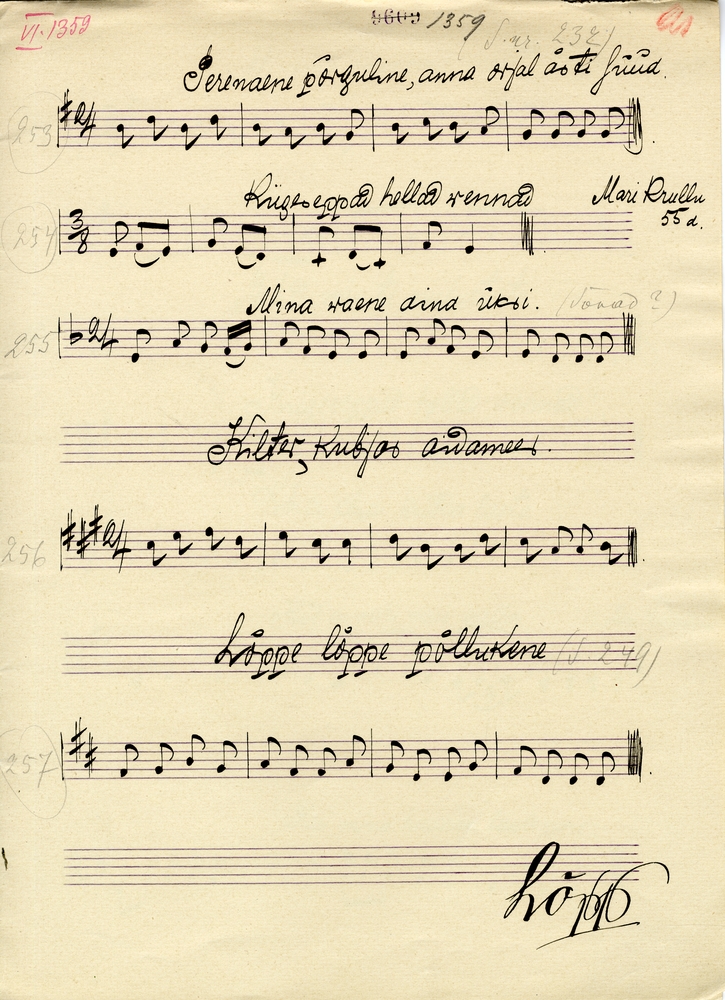 VI. 1359
1359
(S. nr. 232)
Perenaene põrguline, anna orjal åsti süüa.
253
2/4
Rügeseppad hellad wennad
Mari Krullu
55 a.
254
3/8
Mina waene aina üksi. (Sõnad?)
255
2/4
Kilter, Kubjas aidamees.
256
2/4
Lõppe lõppe põllukene (S. 249)
257
Lõpp